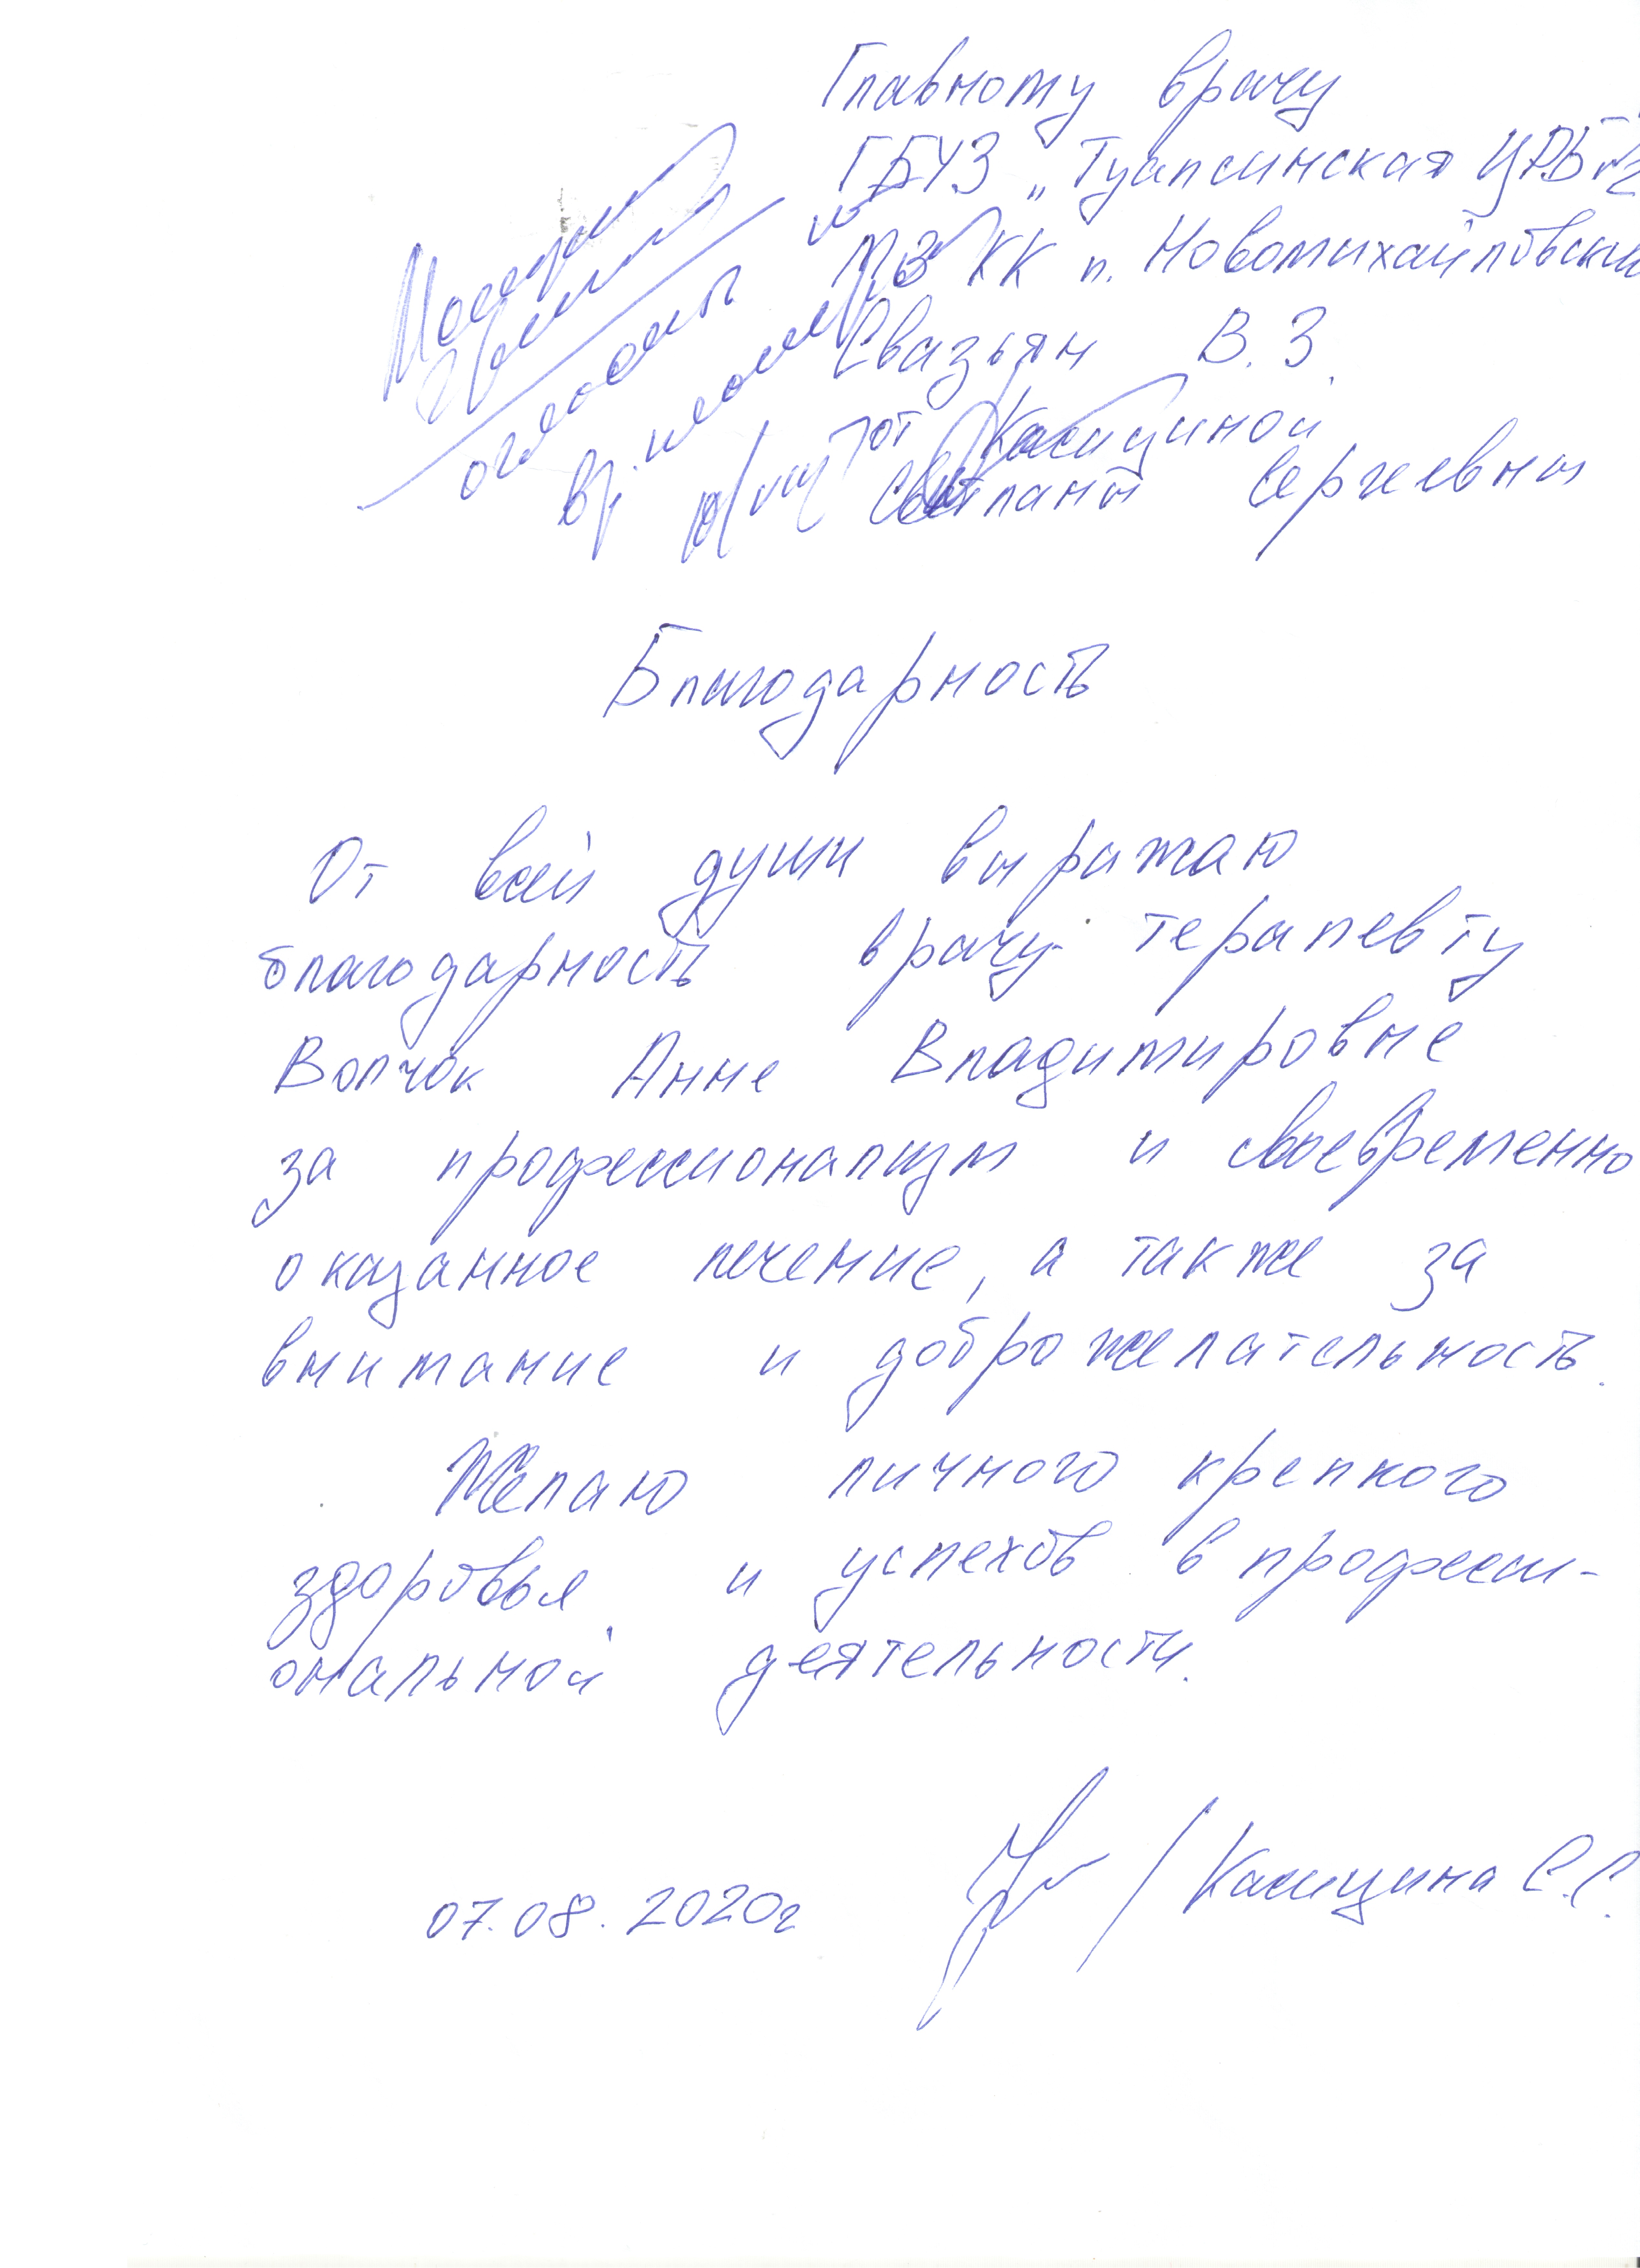 Главному врачу
ГБУЗ „Туапсинская ЦРБ №2
МЗ КК п. Новомихайловский
Свазьян В. З.
от
Светланы Сергеевны
Благодарность
От всей души выражаю
благодарность врачу терапевту
Волчок Анне Владимировне
за профессионализм и своевременно
оказанное лечение, а также за
внимание и доброжелательность.
Желаю личного крепкого
здоровья и успехов в професси-
ональной деятельности.
07.08.2020г / С.С.